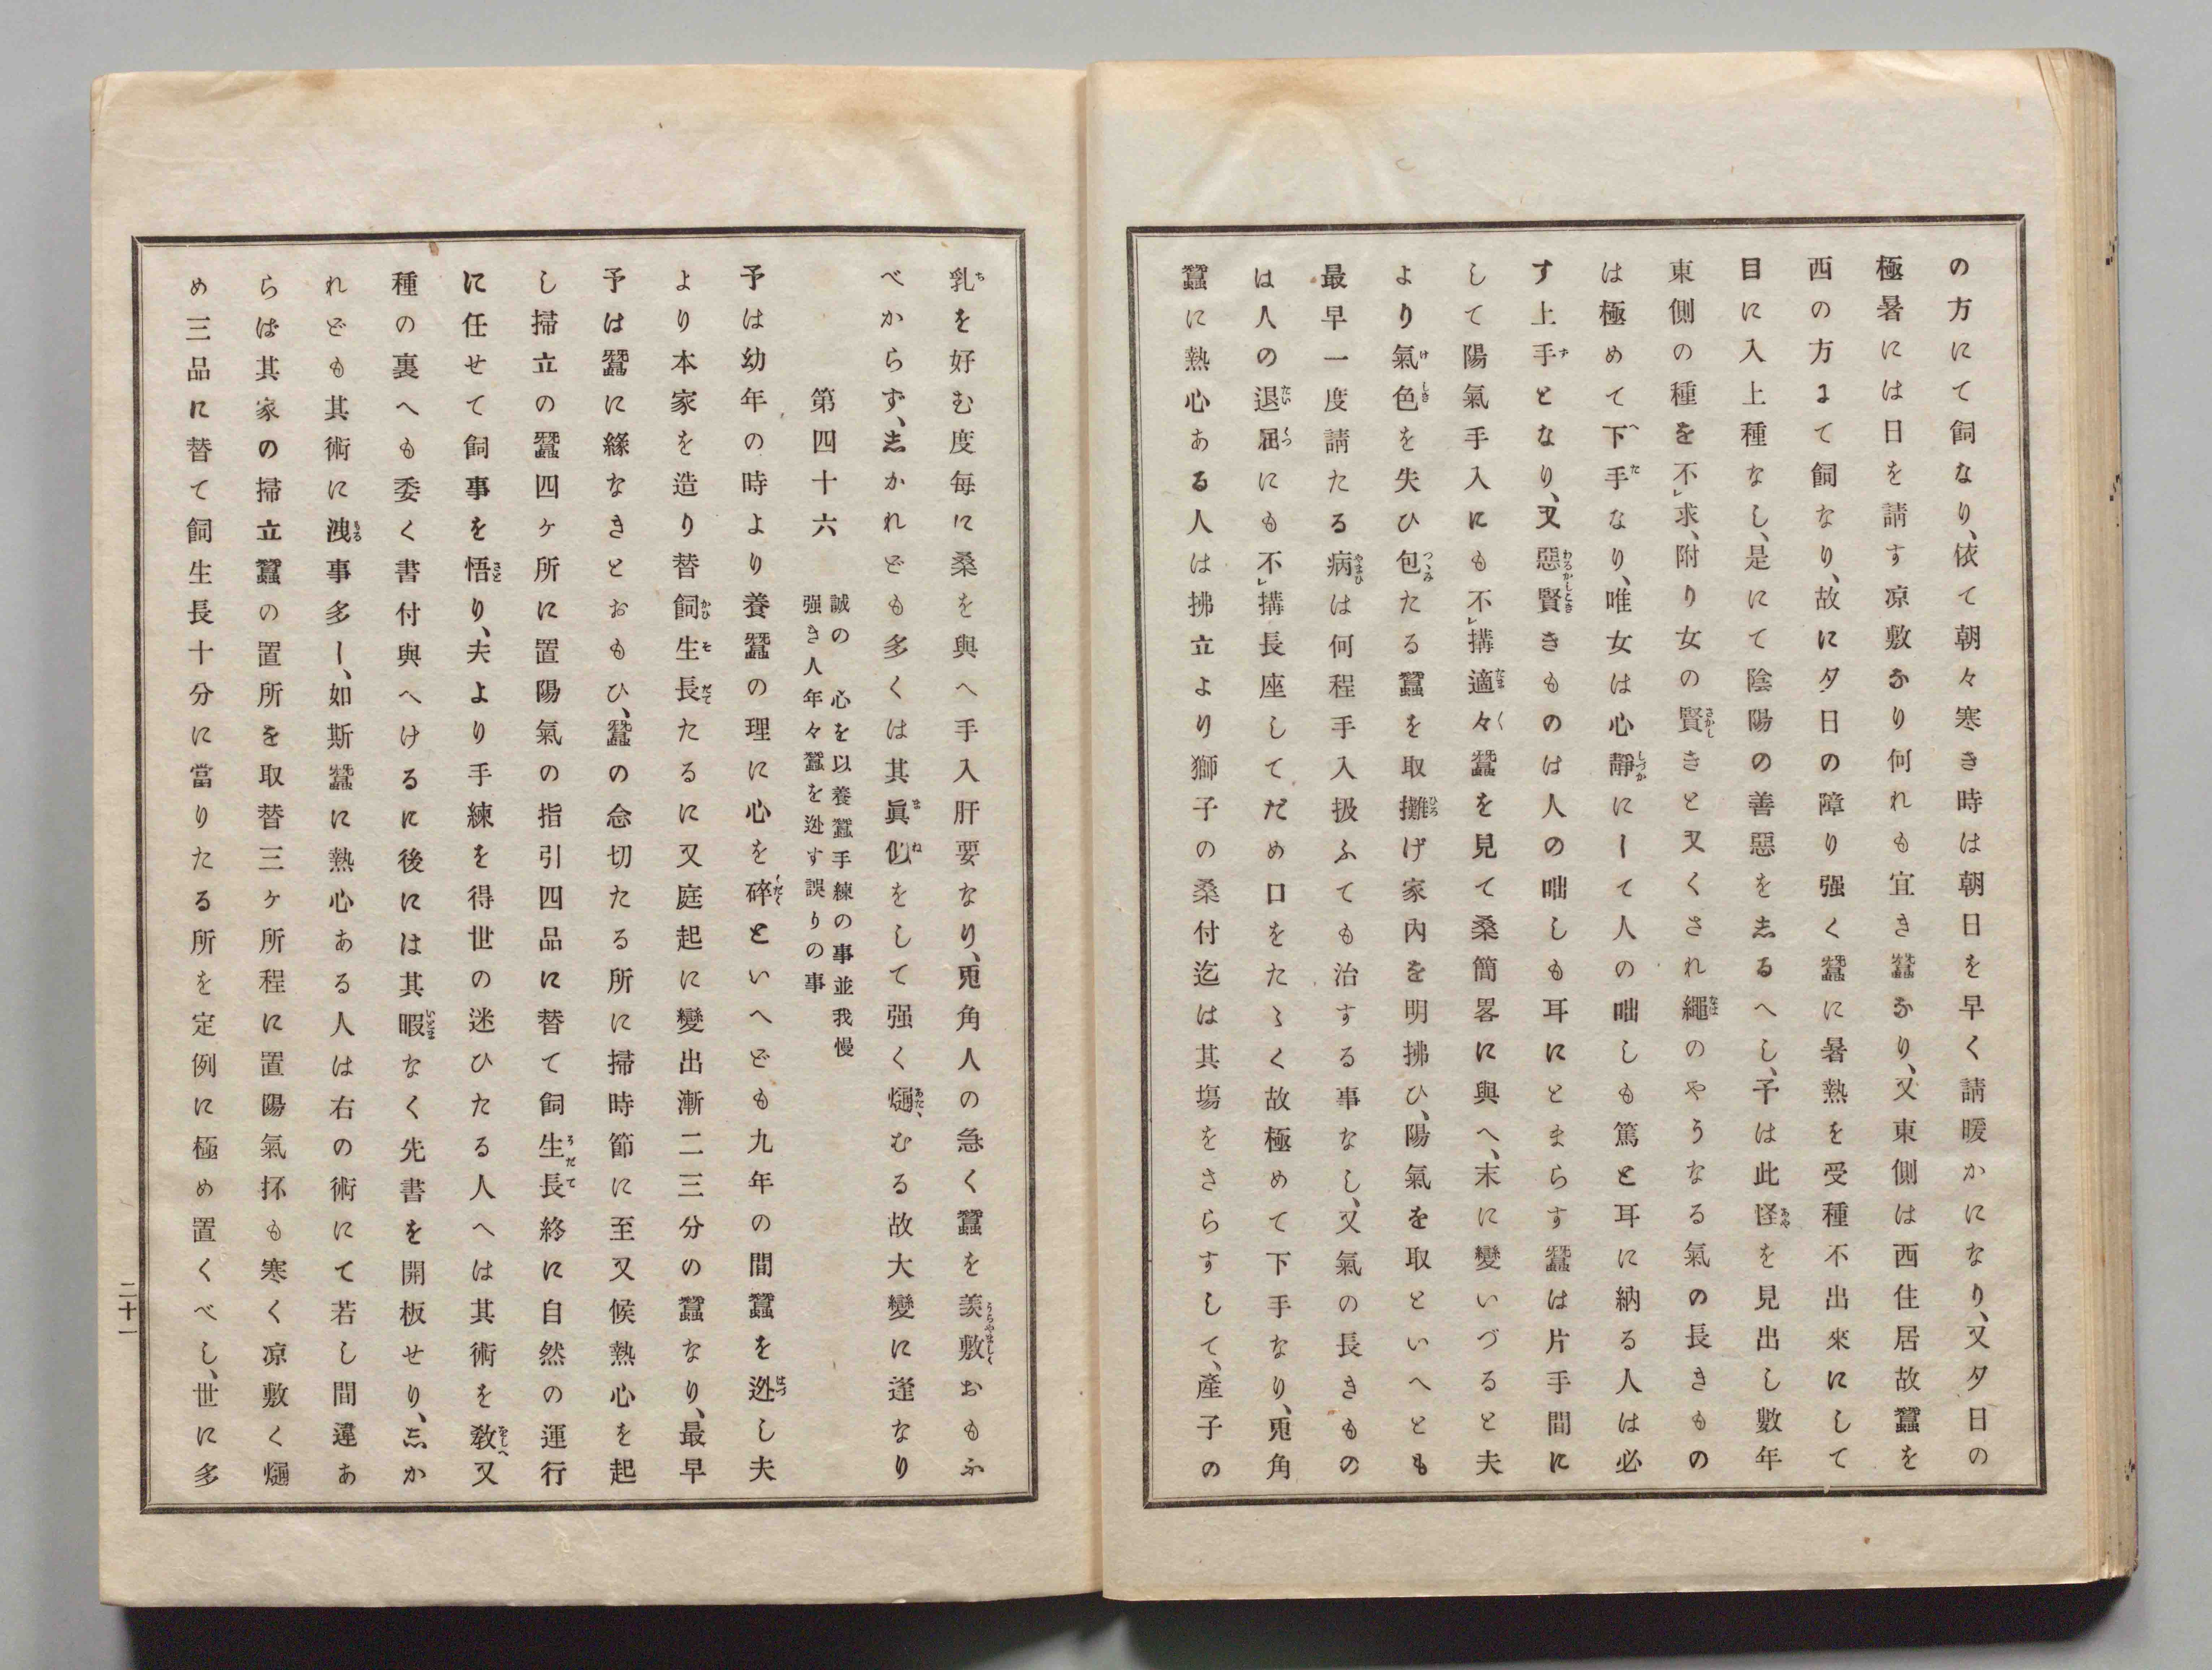 の方にて飼なり、依て朝々寒き時は朝日を早く請暖かになり、又夕日の
極暑には日を請す凉敷なり何れも宜き蠶なり、又東側は西住居故蠶を
西の方まて飼なり、故に夕日の障り强く蠶に暑熱を受種不出來にして
目に入上種なし、是にて陰陽の善惡を志るへし、予は此怪を見出し數年
東側の種を不㆑求、附り女の賢きと又くされ繩のやうなる氣の長きもの
は極めて下手なり、唯女は心靜にして人の咄しも篤と耳に納る人は必
す上手となり、又惡賢きものは人の咄しも耳にとまらす蠶は片手間に
して陽氣手入にも不㆑搆適々蠶を見て桑簡畧に與へ、末に變いづると夫
より氣色を失ひ包たる蠶を取攤げ家內を明拂ひ、陽氣を取といへとも
最早一度請たる病は何程手入扱ふても治する事なし、又氣の長きもの
は人の退屈にも不㆑搆長座してだめ口をたゝく故極めて下手なり、兎角
蠶に熱心ある人は拂立より獅子の桑付迄は其塲をさらすして、產子の
乳を好む度每に桑を與へ手入肝要なり、兎角人の急く蠶を羨敷おもふ
べからず、志かれども多くは其眞似をして强く𤏐むる故大變に逢なり
第四十六 誠の心を以養蠶手練の事並我慢
强き人年々蠶を迯す誤りの事
予は幼年の時より養蠶の理に心を碎といへども九年の間蠶を迯し夫
より本家を造り替飼生長たるに又庭起に變出漸二三分の蠶なり、最早
予は蠶に緣なきとおもひ、蠶の念切たる所に掃時節に至又候熱心を起
し掃立の蠶四ヶ所に置陽氣の指引四品に替て飼生長終に自然の運行
に任せて飼事を悟り、夫より手練を得世の迷ひたる人へは其術を敎又
種の裏へも委く書付與へけるに後には其暇なく先書を開板せり、志か
れども其術に洩事多し、如斯蠶に熱心ある人は右の術にて若し間違あ
らば其家の掃立蠶の置所を取替三ヶ所程に置陽氣抔も寒く凉敷く𤏐
め三品に替て飼生長十分に當りたる所を定例に極め置くべし、世に多
二十一